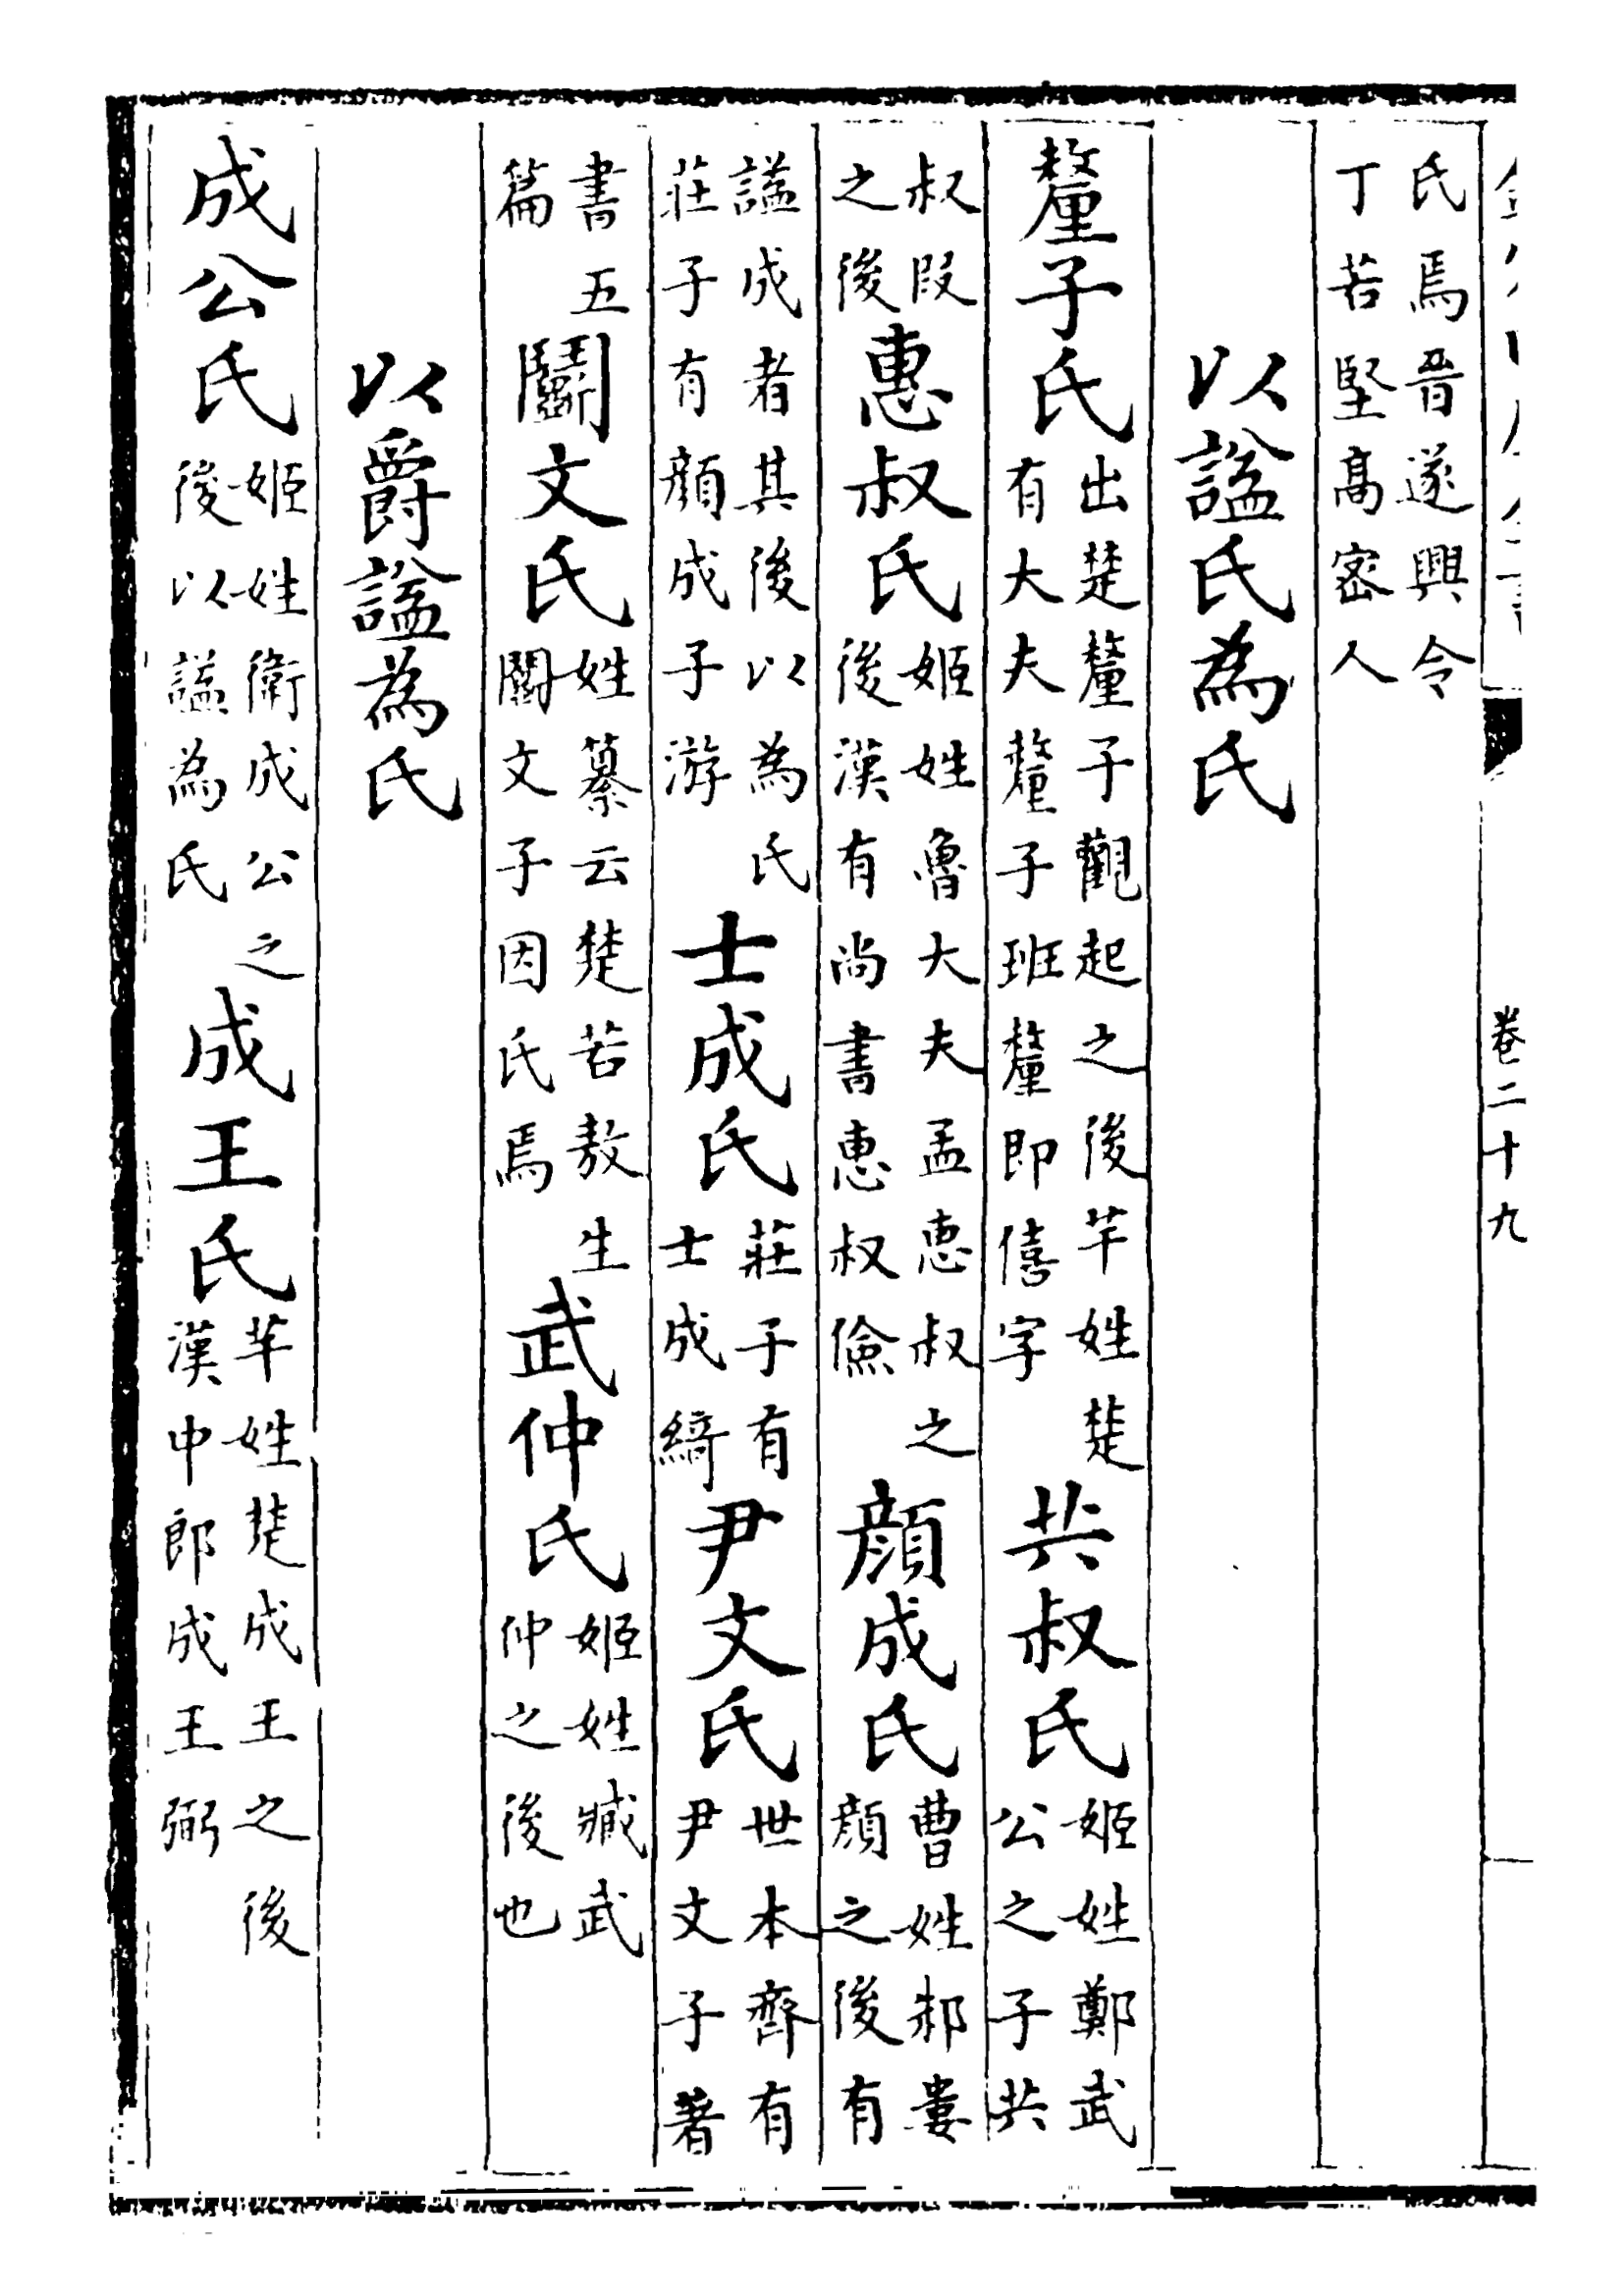 卷二十九
氏焉晉遂興令
丁若堅高密人
以諡氏為氏
釐子氏出楚釐子觀起之後芊姓楚
有大夫釐子班釐即僖字
共叔氏姬姓鄭武
公之子共
叔段
之後
惠叔氏姬姓魯大夫孟惠叔之
後漢有尚書惠叔儉
顏成氏曹姓邾婁
顏之後有
諡成者其後以為氏
莊子有顏成子游
士成氏莊子有
士成綺
尹文氏世本齊有
尹文子著
書五
篇
鬭文氏姓纂云楚若敖生
鬭文子因氏焉
武仲氏姬姓臧武
仲之後也
以爵諡為氏
成公氏姬姓衛成公之
後以諡為氏
成王氏芊姓楚成王之後
漢中郎成王弼